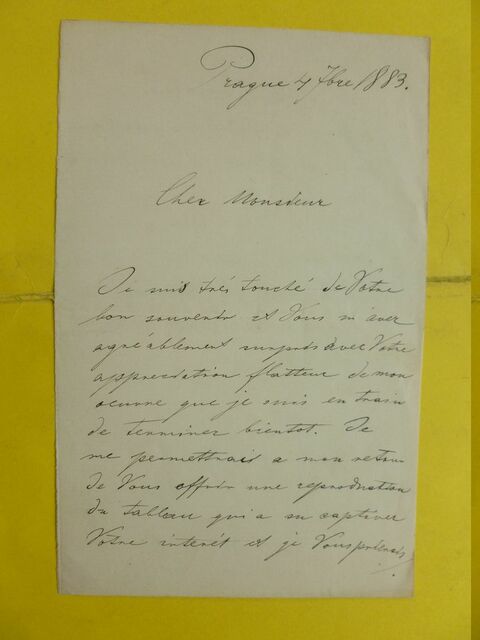 Prague 4 7bre 1883.
Cher Monsieur
Je suis très touché de Votre
bon souvenir et Vous m'avez
agréablement surpris avec Votre
appreciation flatteuse de mon
oeuvre que je suis en train
de terminer bientot. Je
me permettrais a mon retour
de Vous offrir une reproduction
du tableau qui a su captiver
Votre interèt et je Vous